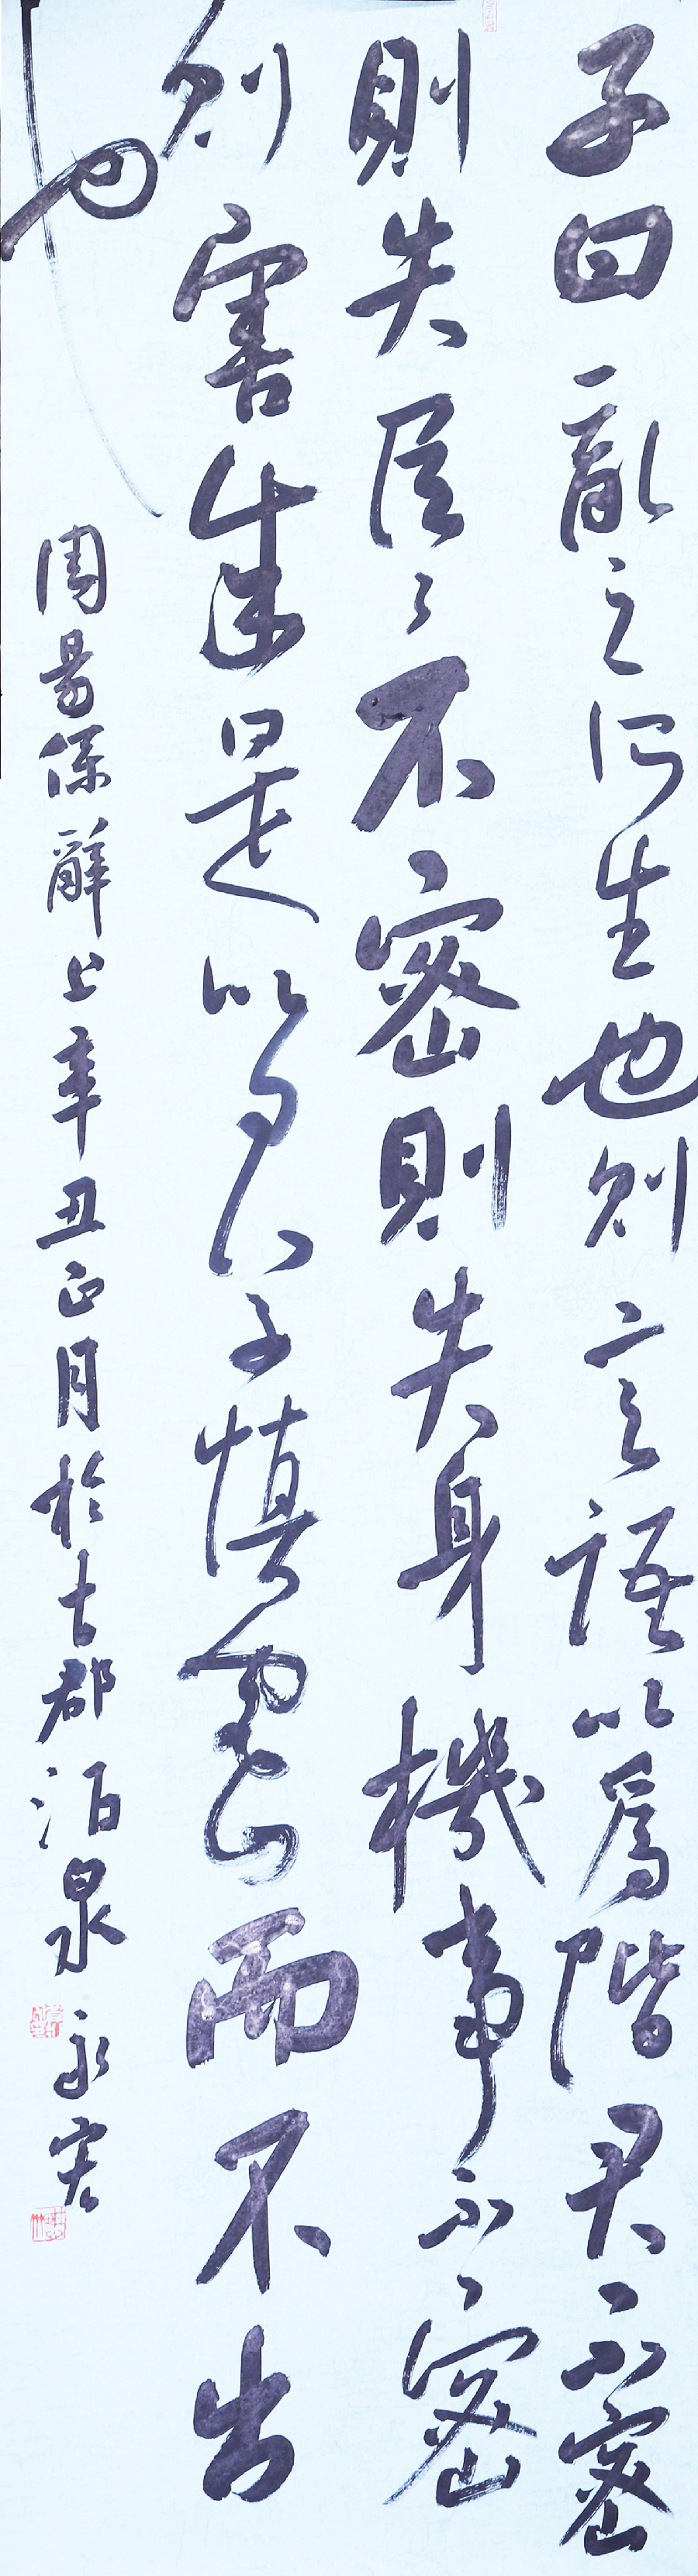 子曰亂之所生也則言語以爲階君不密
則失臣々不密則失身機事不密
則害成是以君子慎密而不出
也
周易係辭上辛丑正月於古郡酒泉 永